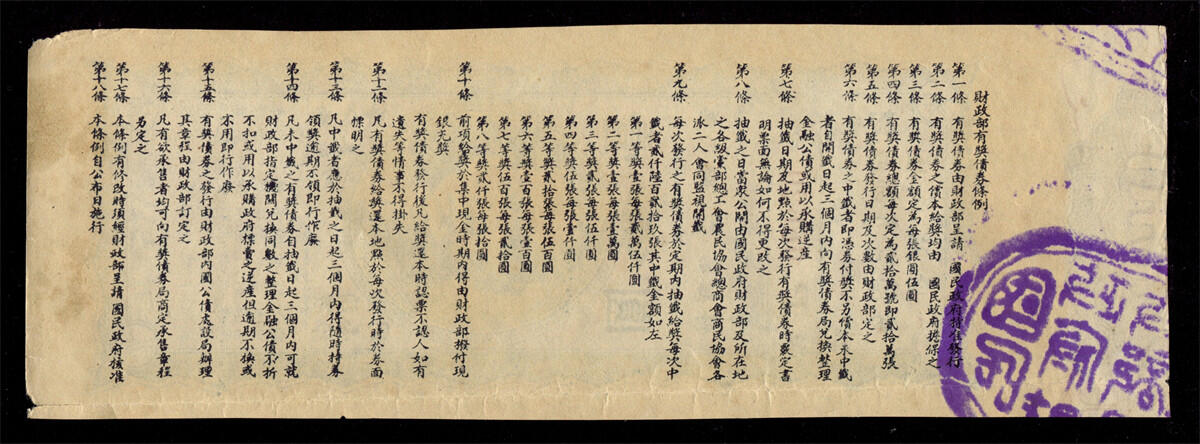 財政部有獎債券條例
第一條 有獎債券由財政部呈請 國民政府特准發行
第二條 有獎債券之償本給獎均由 國民政府擔保之
第三條 有獎債券金額定為每張銀圓伍圓
第四條 有獎債券總額每次定為貳拾萬號即貳拾萬張
第五條 有獎債券發行日期及次數由財政部定之
第六條 有獎債券之中籤者即憑券付獎不另償本未中籤
者自開籤日起三個月內向有獎債券局兌換整理
金融公債或用以承購逆產
第七條 抽籤日期及地點於每次發行有獎債券時嚴定書
明票面無論如何不得更改之
第八條 抽籤之日當眾公開由國民政府財政部及所在地
之各級黨部總工會農民協會總商會商民協會各
派二人會同監視開籤
第九條 每次發行之有獎債券於定期內抽籤給獎每次中
籤者貳仟陸百貳拾玖張其中籤金額如左
第一等獎壹張每張貳萬伍仟圓
第二等獎壹張每張壹萬圓
第三等獎貳張每張伍仟圓
第四等獎伍張每張壹仟圓
第五等獎貳拾張每張伍百圓
第六等獎壹百張每張壹百圓
第七等獎伍百張每張貳拾圓
第八等獎貳仟張每張拾圓
第十條 前項給獎於集中現金時期內得由財政部撥付現
銀充獎
有獎債券發行後凡給獎還本時認票不認人如有
遺失等情事不得掛失
第十二條 凡有獎債券給獎還本地點於每次發行時於券面
標明之
第十三條 凡中籤者應於抽籤之日起三個月內得隨時持券
領獎逾期不領即行作廢
第十四條 凡未中籤之有獎債券自抽籤日起三個月內可就
財政部指定機關兌換同數之整理金融公債不折
不扣或用以承購政府標賣之逆產但逾期不換或
不用即行作廢
第十五條 有獎債券之發行由財政部內國公債處設局辦理
其章程由財政部訂定之
第十六條 凡有欲承售者均可向有獎債券局商定承售章程
另定之
第十七條 本條例有修改時須經財政部呈請國民政府核准
第十八條 本條例自公布日施行